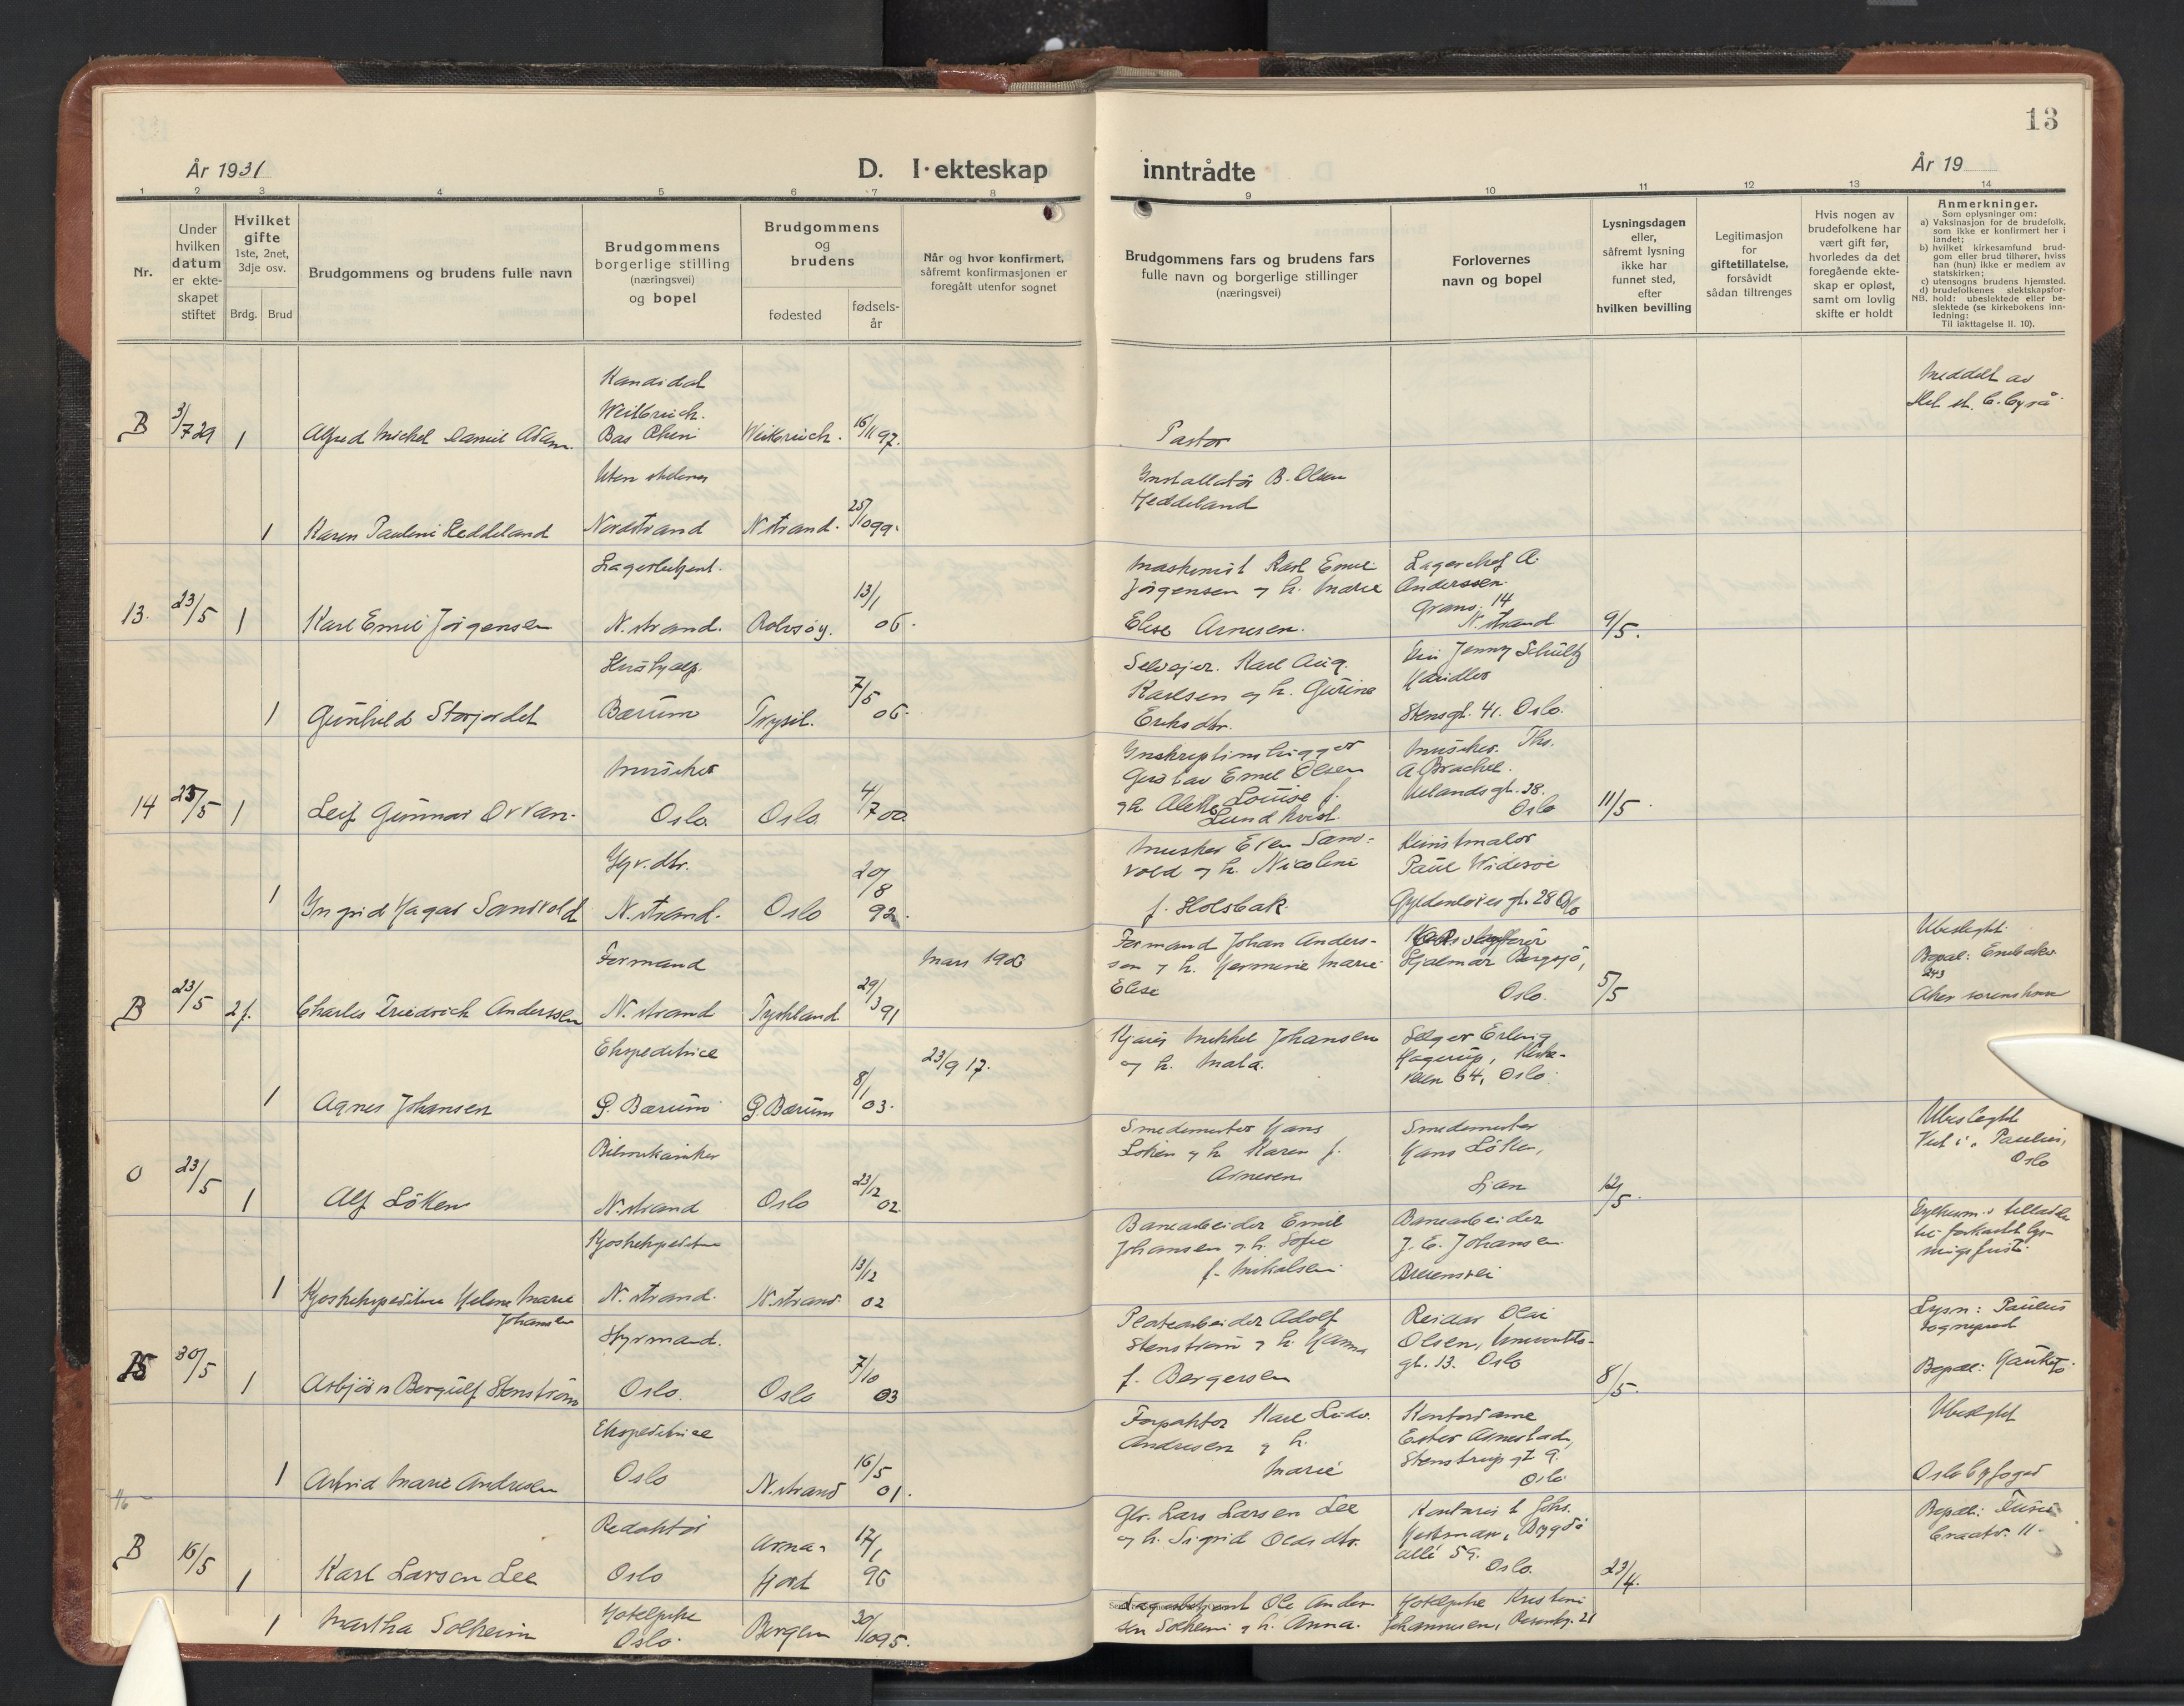 13
År 1931
D. I·ekteskap
inntrådte
År 19
1 2 3 4 5 6 7 8 9 10 11 12 13 14
Nr.
Under
hvilken
datum
er ekte-
skapet
stiftet
Hvilket
gifte
1ste, 2net,
3dje osv.
Brdg. Brud
Brudgommens og brudens fulle navn
Brudgommens
borgerlige stilling
(næringsvei)
og bopel
Brudgommens
og
brudens
fødested
fødsels-
år
Når og hvor konfirmert,
såfremt konfirmasjonen er
foregått utenfor sognet
Brudgommens fars og brudens fars
fulle navn og borgerlige stillinger
(næringsvei)
Forlovernes
navn og bopel
Lysningsdagen
eller,
såfremt lysning
ikke har
funnet sted,
efter
hvilken bevilling
Legitimasjon
for
giftetillatelse,
forsåvidt
sådan tiltrenges
Hvis nogen av
brudefolkene har
vært gift før,
hvorledes da det
foregående ekte-
skap er opløst,
samt om lovlig
skifte er holdt
Anmerkninger.
Som oplysninger om:
a) Vaksinasjon for de brudefolk,
som ikke er konfirmert her i
landet;
b) hvilket kirkesamfund brud-
gom eller brud tilhører, hviss
han (hun) ikke er medlem av
statskirken;
c) utensogns brudens hjemsted.
d) brudefolkenes slektskapsfor-
NB. hold: ubeslektede eller be-
slektede (se kirkebokens inn-
ledning:
Til iakttagelse II. 10).
Kandidat
Weitbruch.
B 3/7 29 1 Alfred Michel Daniel Adam. Bas Rhin Weitbruch. 16/11 97. Pastor
Meddelt av
1 Karen Pauline Heddeland Nordstrand N.strand. 25/10 99.
Installatör B. Olsen
Heddeland
13. 23/5 1 Karl Emil Jörgensen N.strand. Rolvsøy. 13/1 06.
Maskinist Karl Emil
Jörgensen og h. Marie
Elise Arnesen.
Lagerchef A.
Anderssen.
Granv. 14
N.strand
9/5.
Hushjelp
1 Gunhild Storjordet Bærum Trysil. 7/5 06.
Selvejer. Karl Aug.
Karlsen og h. Gurine
Eriksdtr.
Jenny Schultz
Handler
Stensgt. 41. Oslo.
Musiker
14 23/5 1 Leif Gunnar Orvan. Oslo. Oslo. 4/7 00
Inskriptionshugger
Gustav Emil Olsen
og h Alette Louise f.
Lundkvist.
Musiker. Ths.
A. Brachel.
Uelandsgt. 28.
Oslo
11/5.
Gv. dtr.
1 Ingrid Hagar Sandvold N.strand. Oslo 20/8 92.
Musiker Even Sand-
vold og h. Nicoline
f. Holsbak.
Kunstmaler
Paul Widerøe
Gyldenløves gt. 28 Oslo
Formand
B 23/5 2 f. Charles Friedrich Anderssen N.strand Tyskland 29/3 91
Mars 1906
Formand Johan Anders-
sen og h. Hermine Marie
Elise
Hjalmar Bergsjö,
Oslo.
5/5
Ubeslegtt.
Bopæl: Enebakv.
243
Aker sorenskriver
Ekspeditrice
1 Agnes Johansen Ö. Bærum Ö. Bærum 8/1 03.
23/9 17.
Mikkel Johansen
og h. Mala.
Selger Erling
Hagerup, Kirke-
veien 64, Oslo.
Bilmekaniker
O 23/5 1 Alf Löken N.strand Oslo 23/12 02
Smedemester Hans
Löken og h. Karen f.
Arnesen
Smedemester
Hans Löken,
Ljan
12/5.
Ubeslegtt
Viet i Paulus,
Oslo
Kioskekspeditrice
1 Kioskekspeditrice Helene Marie
Johansen N.strand. N.strand. 13/12 02
Banearbeider Emil
Johansen og h. Sofie
f. Mikalsen
Banearbeider
J. E. Johansen
Fylkesm.s tilladelse
til forkortet lys-
ningsfrist.
Styrmand.
15 30/5 1 Asbjörn Bergulf Stenström Oslo. Oslo 7/10 03
Platearbeider Adolf
Stenström og h. Hanna
f. Bergersen
Reidar Olai
Olsen,
gt. 13. Oslo
8/5.
Lysn: Paulus
sogneprest
Bopæl: Hauketo.
Ekspeditrice
1 Astrid Marie Andresen Oslo N.strand 16/5 01.
Forpakter Karl Ludv.
Andresen og h.
Marie
Kontordame
Ester Arnestad,
Stenstrups gt 9.
Oslo
Ubeslegtt
Oslo byfoged
Redaktør
B 16/5 1 Karl Larsen Lee Oslo Arna-
fjord 17/1 96
Gbr. Lars Larsen Lee
og h. Sigrid Olasdtr.
Kontorist Johs.
Herman, Bygdö
allé 59.
Oslo.
23/4.
Bopæl:
1 Martha Solheim Hotelpike
Oslo. Bergen 30/10 95.
Lagerbetjent Ole Ander-
sen Solheim og h. Anna.
Hotelpike Kristine
Johannesen, Rosenkr. 21